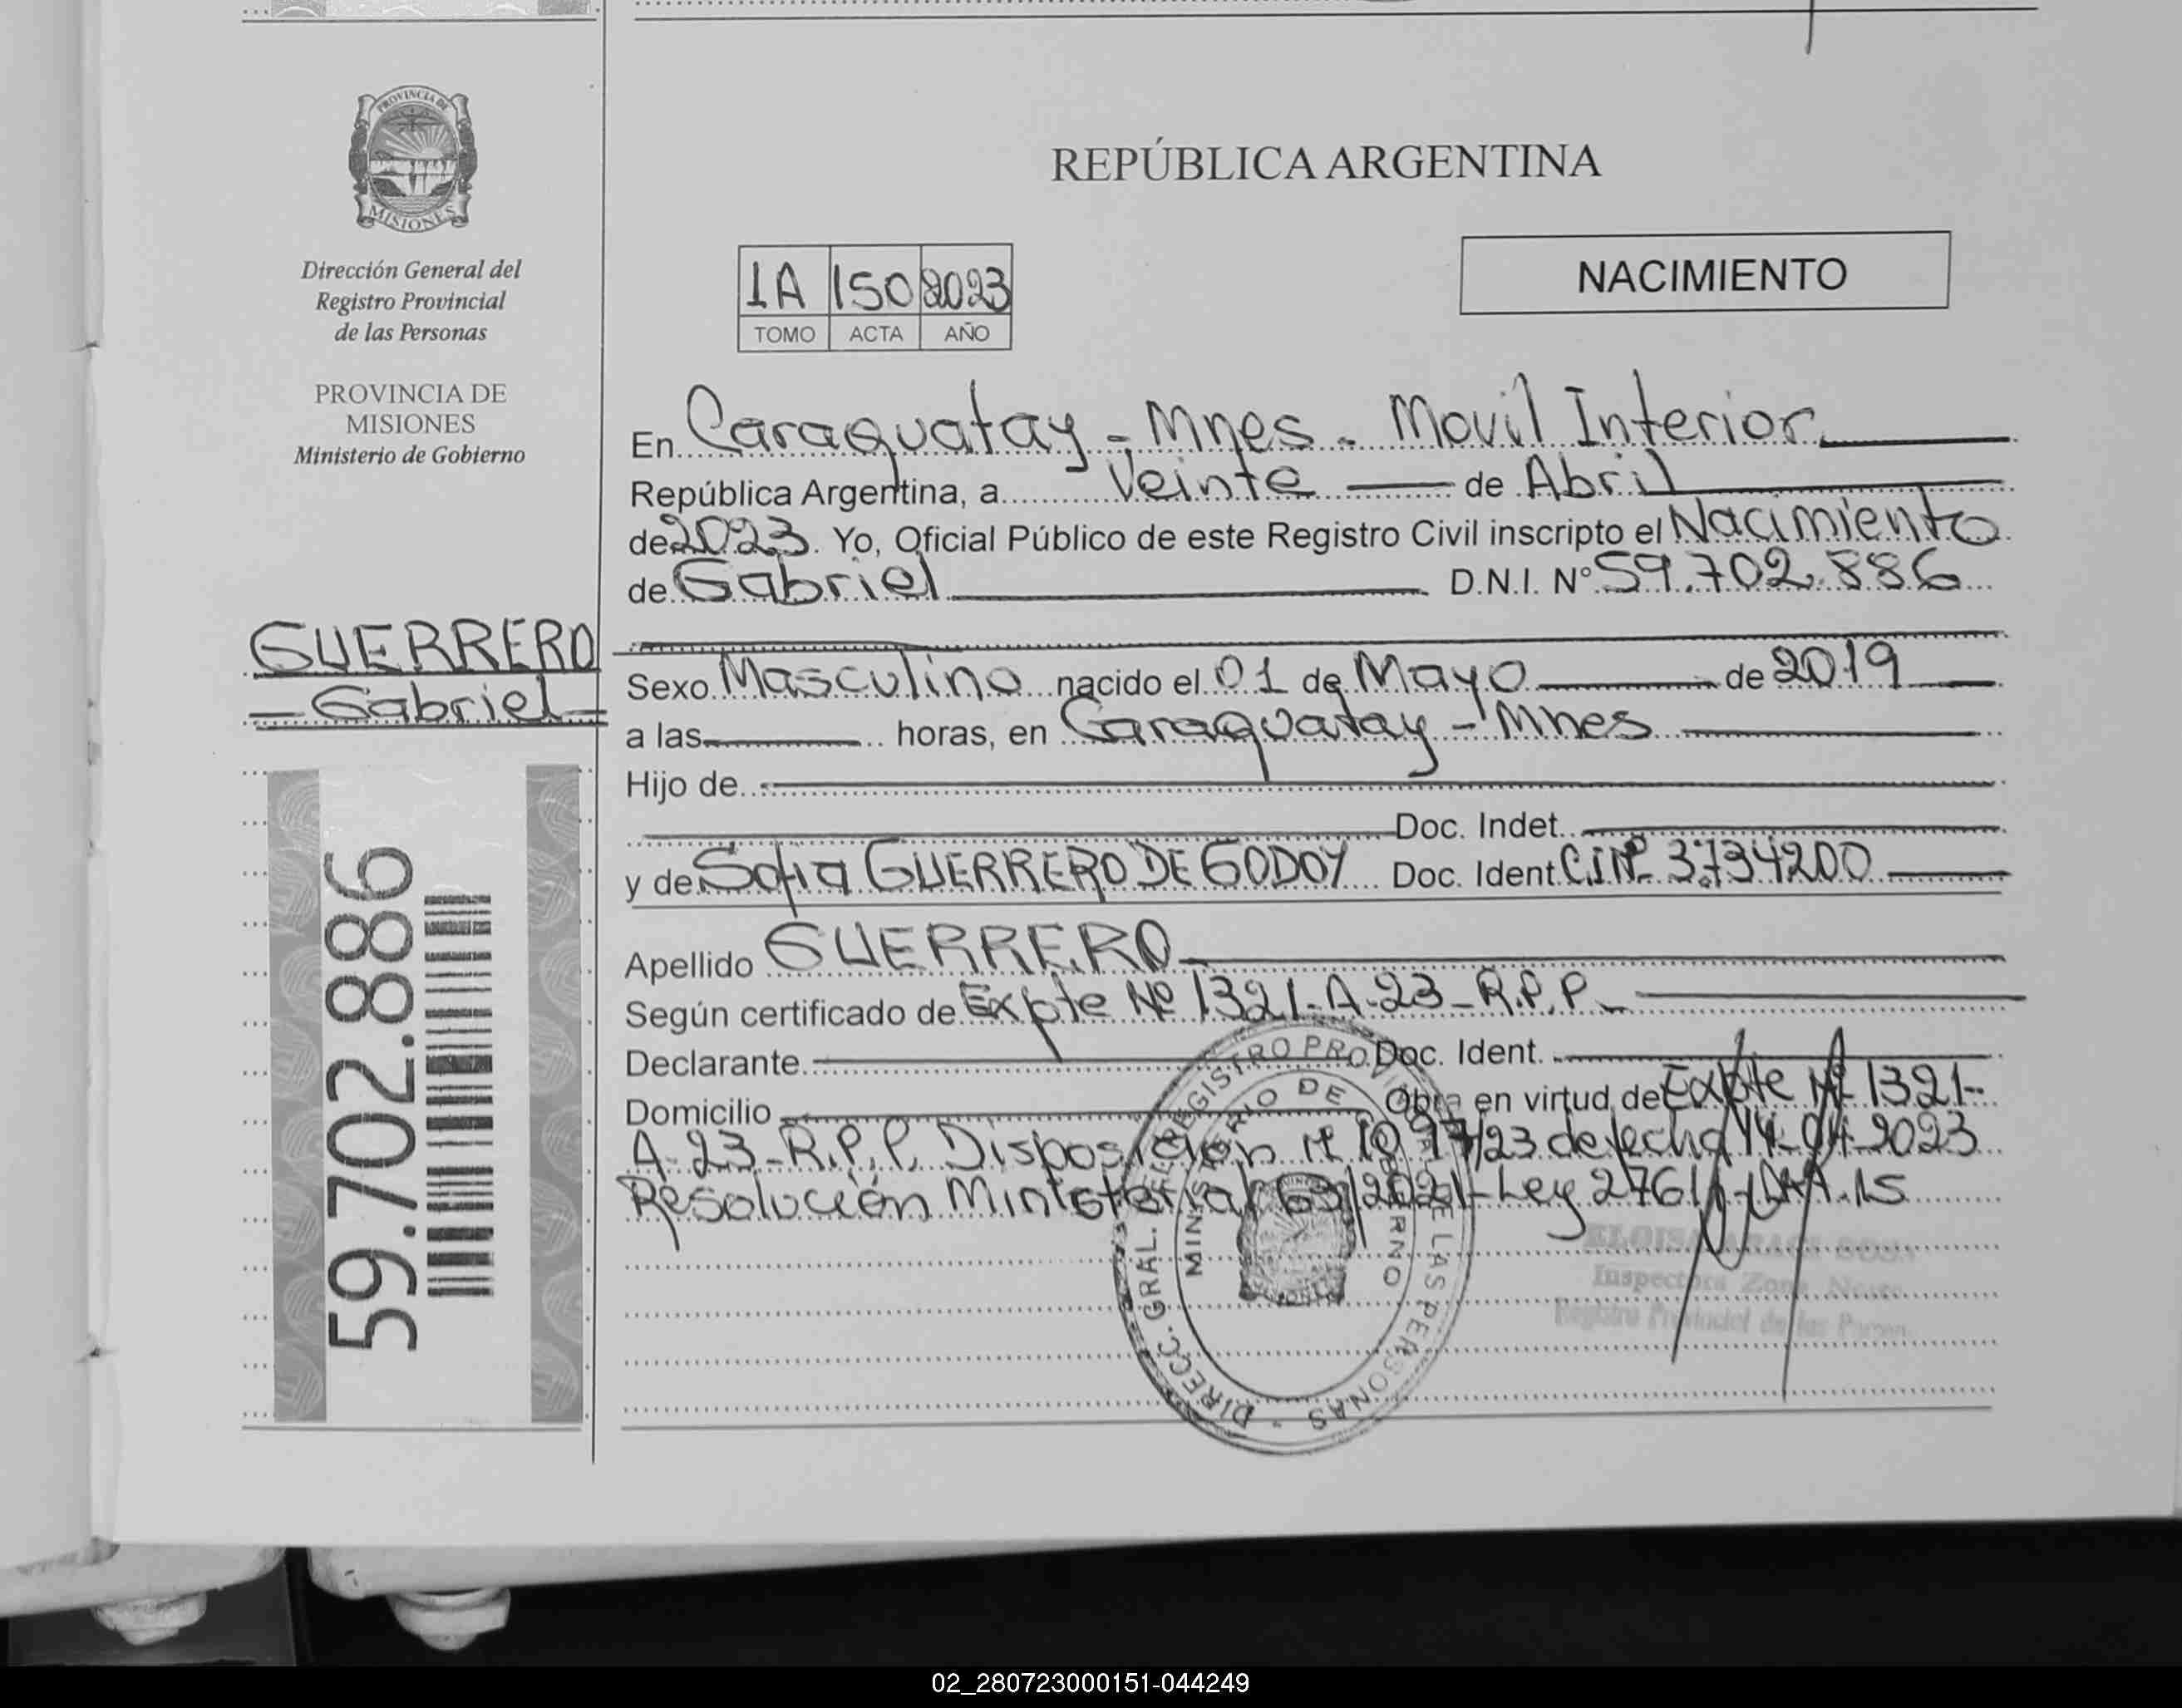 PROVINCIA DE
MISIONES
Dirección General del
Registro Provincial
de las Personas
PROVINCIA DE
MISIONES
Ministerio de Gobierno
GUERRERO
Gabriel
59.702.886
REPÚBLICA ARGENTINA
1A 150 2023
TOMO ACTA AÑO
NACIMIENTO
En Caraguatay - Mnes - Movil Interior
República Argentina, a Veinte de Abril
de 2023. Yo, Oficial Público de este Registro Civil inscripto el Nacimiento
de Gabriel D.N.I. Nº 59.702.886
Sexo Masculino nacido el 01 de Mayo de 2019
a las horas, en Caraguatay - Mnes
Hijo de
Doc. Indet.
y de Sofia GUERRERO DE GODOY Doc. Ident. C.I Nº 3.734200
Apellido GUERRERO
Según certificado de Expte Nº 1321-A-23-R.P.P.
Declarante Doc. Ident.
Domicilio Obra en virtud de Expte Nº 1321-
A-23-R.P.P. Disposición Nº 10 /23 de fecha 14-04-2023
Resolución Ministerial 63/2021-Ley 27611
DIRECC. GRAL. DEL REGISTRO PROVINCIAL DE LAS PERSONAS
MINISTERIO DE GOBIERNO
ELOISA
Inspectora Zona Norte
Registro Provincial de las Person
02_280723000151-044249